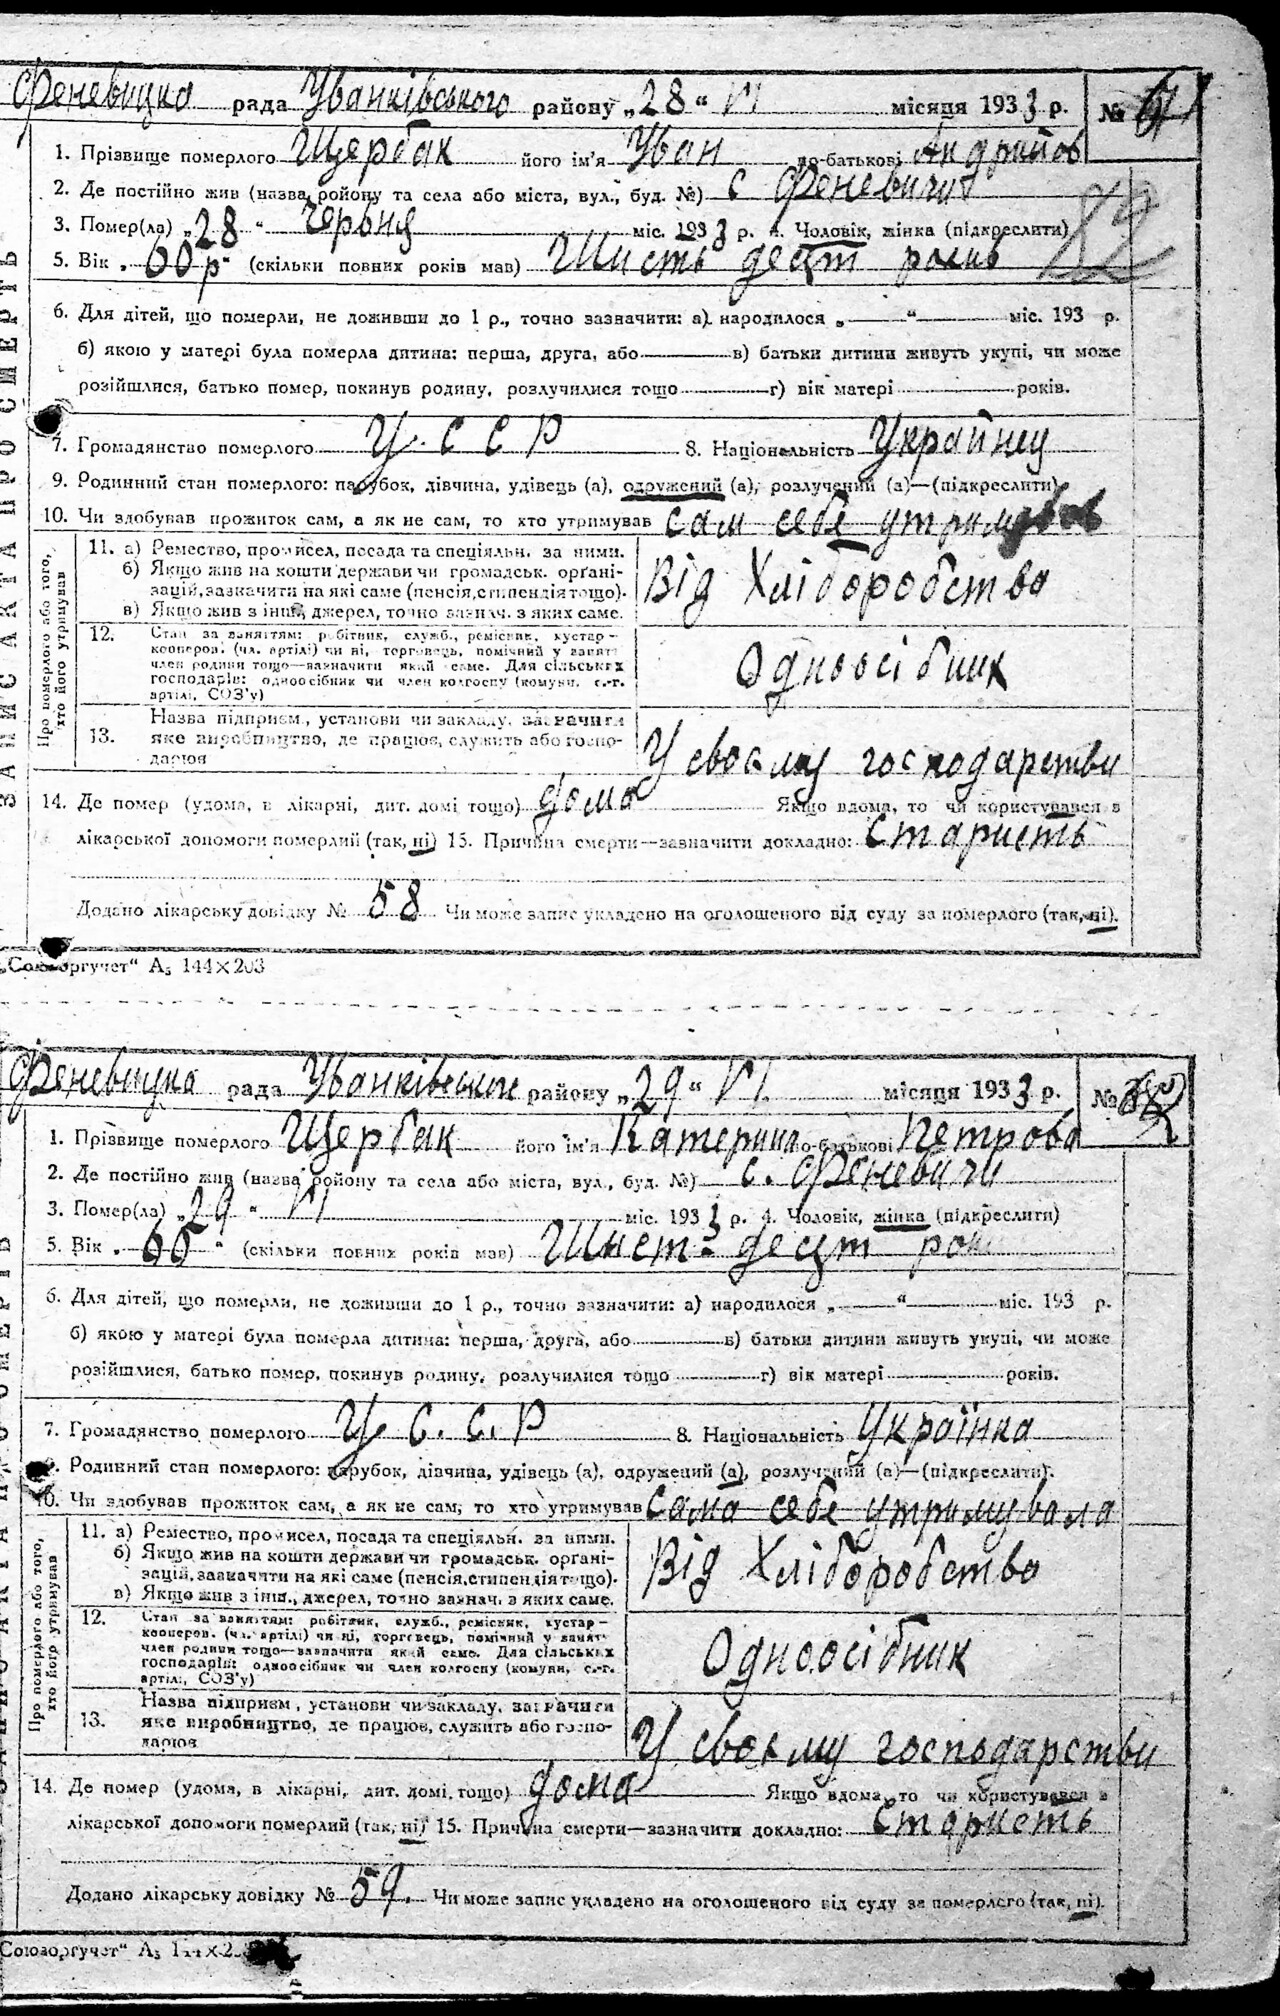 Феневицка рада Уванківського району „28“ VI місяця 1933 р. №
1. Прізвище померлого Щербак його ім'я Уван по-батькові Андрийов
2. Де постійно жив (назва ройону та села або міста, вул., буд. №) с Феневичи
3. Помер(ла) „28“ Червня міс. 1933 р. 4. Чоловік, жінка (підкреслити)
82
5. Вік „60 р“ (скільки повних років мав) Шисть десят
6. Для дітей, що померли, не доживши до 1 р., точно зазначити: а) народилося „ “ міс. 193 р.
б) якою у матері була померла дитина: перша, друга, або в) батьки дитини живуть укупі, чи може
розійшлися, батько помер, покинув родину, розлучилися тощо г) вік матері років.
7. Громадянство померлого У. С С Р 8. Національність Украйнец
9. Родинний стан померлого: парубок, дівчина, удівець (а), одружений (а), розлучений (а)—(підкреслити)
10. Чи здобував прожиток сам, а як не сам, то хто утримував сам себе утримував
ЗАПИС АКТА ПРО СМЕРТЬ
Про померлого або того, хто його утримував
11. а) Ремество, промисел, посада та спеціяльн. за ними.
б) Якщо жив на кошти держави чи громадськ. орґані-
зацій, зазначити на які саме (пенсія, стипендія тощо).
в) Якщо жив з інш. джерел, точно зазнач. з яких саме.
Від Хліборобства
12. Стан за заняттям: робітник, служб., ремісник, кустар-
кооперов. (чл. артілі) чи ні, торговець, помічний у занят.
член родини тощо—зазначити який саме. Для сільських
господарів: одноосібник чи член колгоспу (комуни, с.-г.
артілі, СОЗ'у)
Одноосібник
13. Назва підприєм., установи чи закладу, зазначити
яке виробництво, де працює, служить або госпо-
дарює
У своєму господарстви
14. Де помер (удома, в лікарні, дит. домі тощо) дома Якщо вдома, то чи користувався в
лікарської допомоги померлий (так, ні) 15. Причина смерти—зазначити докладно: Старисть
Додано лікарську довідку № 58 Чи може запис укладено на оголошеного від суду за померлого (так, ні).
„Союзоргучет“ А₅ 144×203
Феневицка рада Уванківськог району „29“ VI місяця 1933 р. №
1. Прізвище померлого Щербак його ім'я Катерина по-батькові Петрова
2. Де постійно жив (назва ройону та села або міста, вул., буд. №) с. Феневичи
3. Помер(ла) „29“ VI міс. 1933 р. 4. Чоловік, жінка (підкреслити)
5. Вік „60“ (скільки повних років мав) Шист- десят
6. Для дітей, що померли, не доживши до 1 р., точно зазначити: а) народилося „ “ міс. 193 р.
б) якою у матері була померла дитина: перша, друга, або в) батьки дитини живуть укупі, чи може
розійшлися, батько помер, покинув родину, розлучилися тощо г) вік матері років.
7. Громадянство померлого У. С. С. Р 8. Національність Українка
9. Родинний стан померлого: парубок, дівчина, удівець (а), одружений (а), розлучений (а)—(підкреслити).
10. Чи здобував прожиток сам, а як не сам, то хто утримував сама себе утримувала
Про померлого або того, хто його утримував
11. а) Ремество, промисел, посада та спеціяльн. за ними.
б) Якщо жив на кошти держави чи громадськ. орґані-
зацій, зазначити на які саме (пенсія, стипендія тощо).
в) Якщо жив з інш., джерел, точно зазнач. з яких саме.
Від Хліборобства
12. Стан за заняттям: робітник, служб., ремісник, кустар-
кооперов. (чл. артілі) чи ні, торговець, помічний у занят.
член родини тощо—зазначити який саме. Для сільських
господарів: одноосібник чи член колгоспу (комуни, с.-г.
артілі, СОЗ'у)
Одноосібник
13. Назва підприєм., установи чи закладу, зазначити
яке виробництво, де працює, служить або госпо-
дарює
У своєму господарстви
14. Де помер (удома, в лікарні, дит. домі тощо) дома Якщо вдома, то чи користувався в
лікарської допомоги померлий (так, ні) 15. Причина смерти—зазначити докладно: Старисть
Додано лікарську довідку № 59. Чи може запис укладено на оголошеного від суду за померлого (так, ні).
Союзоргучет“ А₅ 144×2